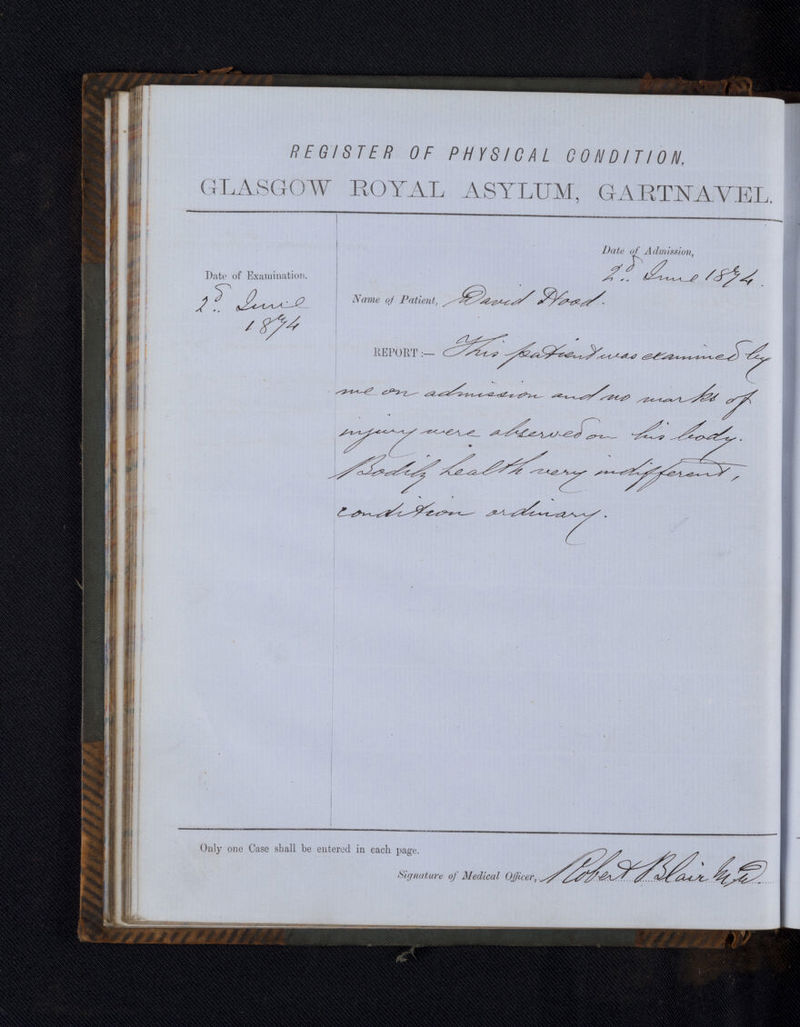 REGISTER OF PHYSICAL CONDITION.
GLASGOW ROYAL ASYLUM, GARTNAVEL.
Date of Admission,
2d. June 1874.
Date of Examination.
2d. June
1874
Name of Patient, David Hood.
REPORT:— This patient was examined by
me on admission and no marks of
injury were observed on his body.
Bodily health very indifferent,
condition ordinary.
Only one Case shall be entered in each page.
Signature of Medical Officer, Robert Blair M.D.